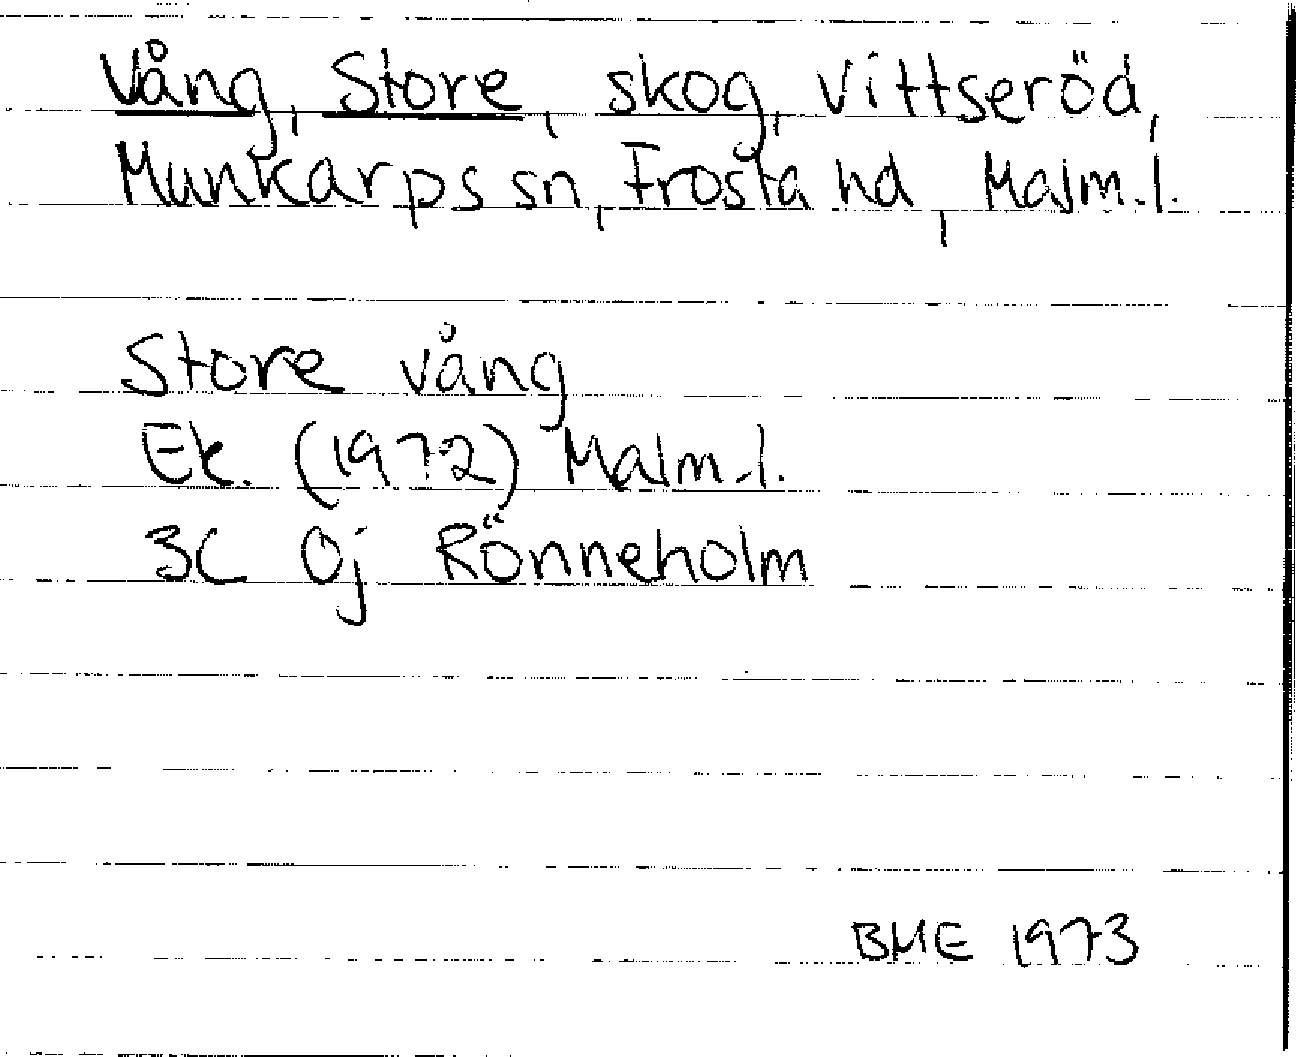 Vång, Store, skog, Vittseröd,
Munkarps sn, Frosta hd, Malm.l.
Store vång
Ek. (1972) Malm.l.
3C 0j Rönneholm
BME 1973